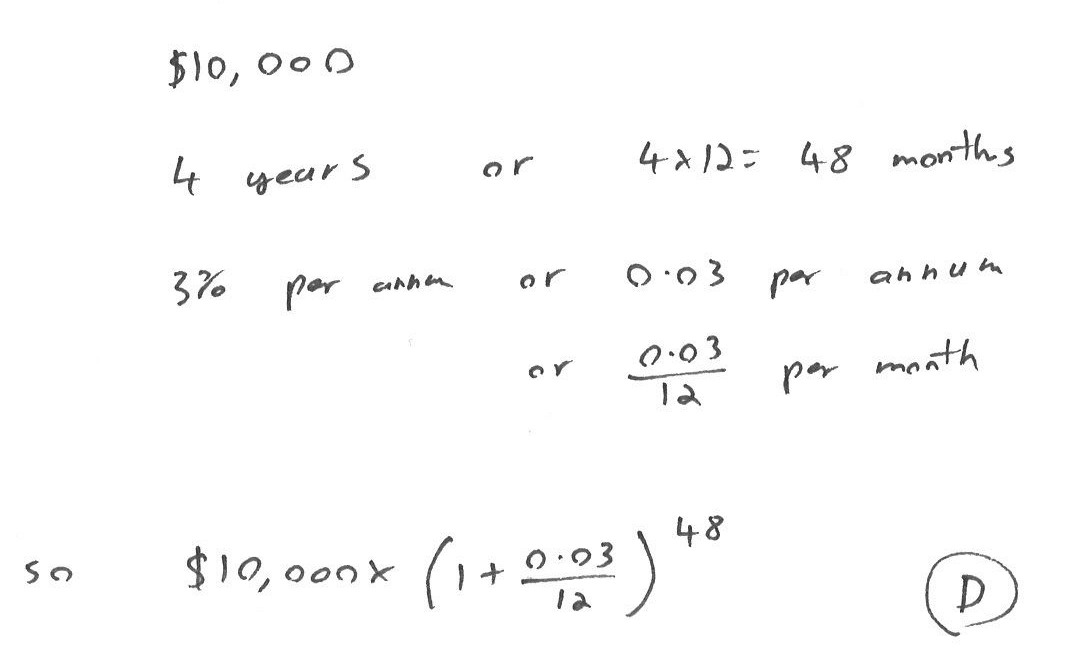 $10,000
4 years or 4×12= 48 months
3% per annum or 0.03 per annum
or 0.03/12 per month
so $10,000× (1+ 0.03/12)^48 D